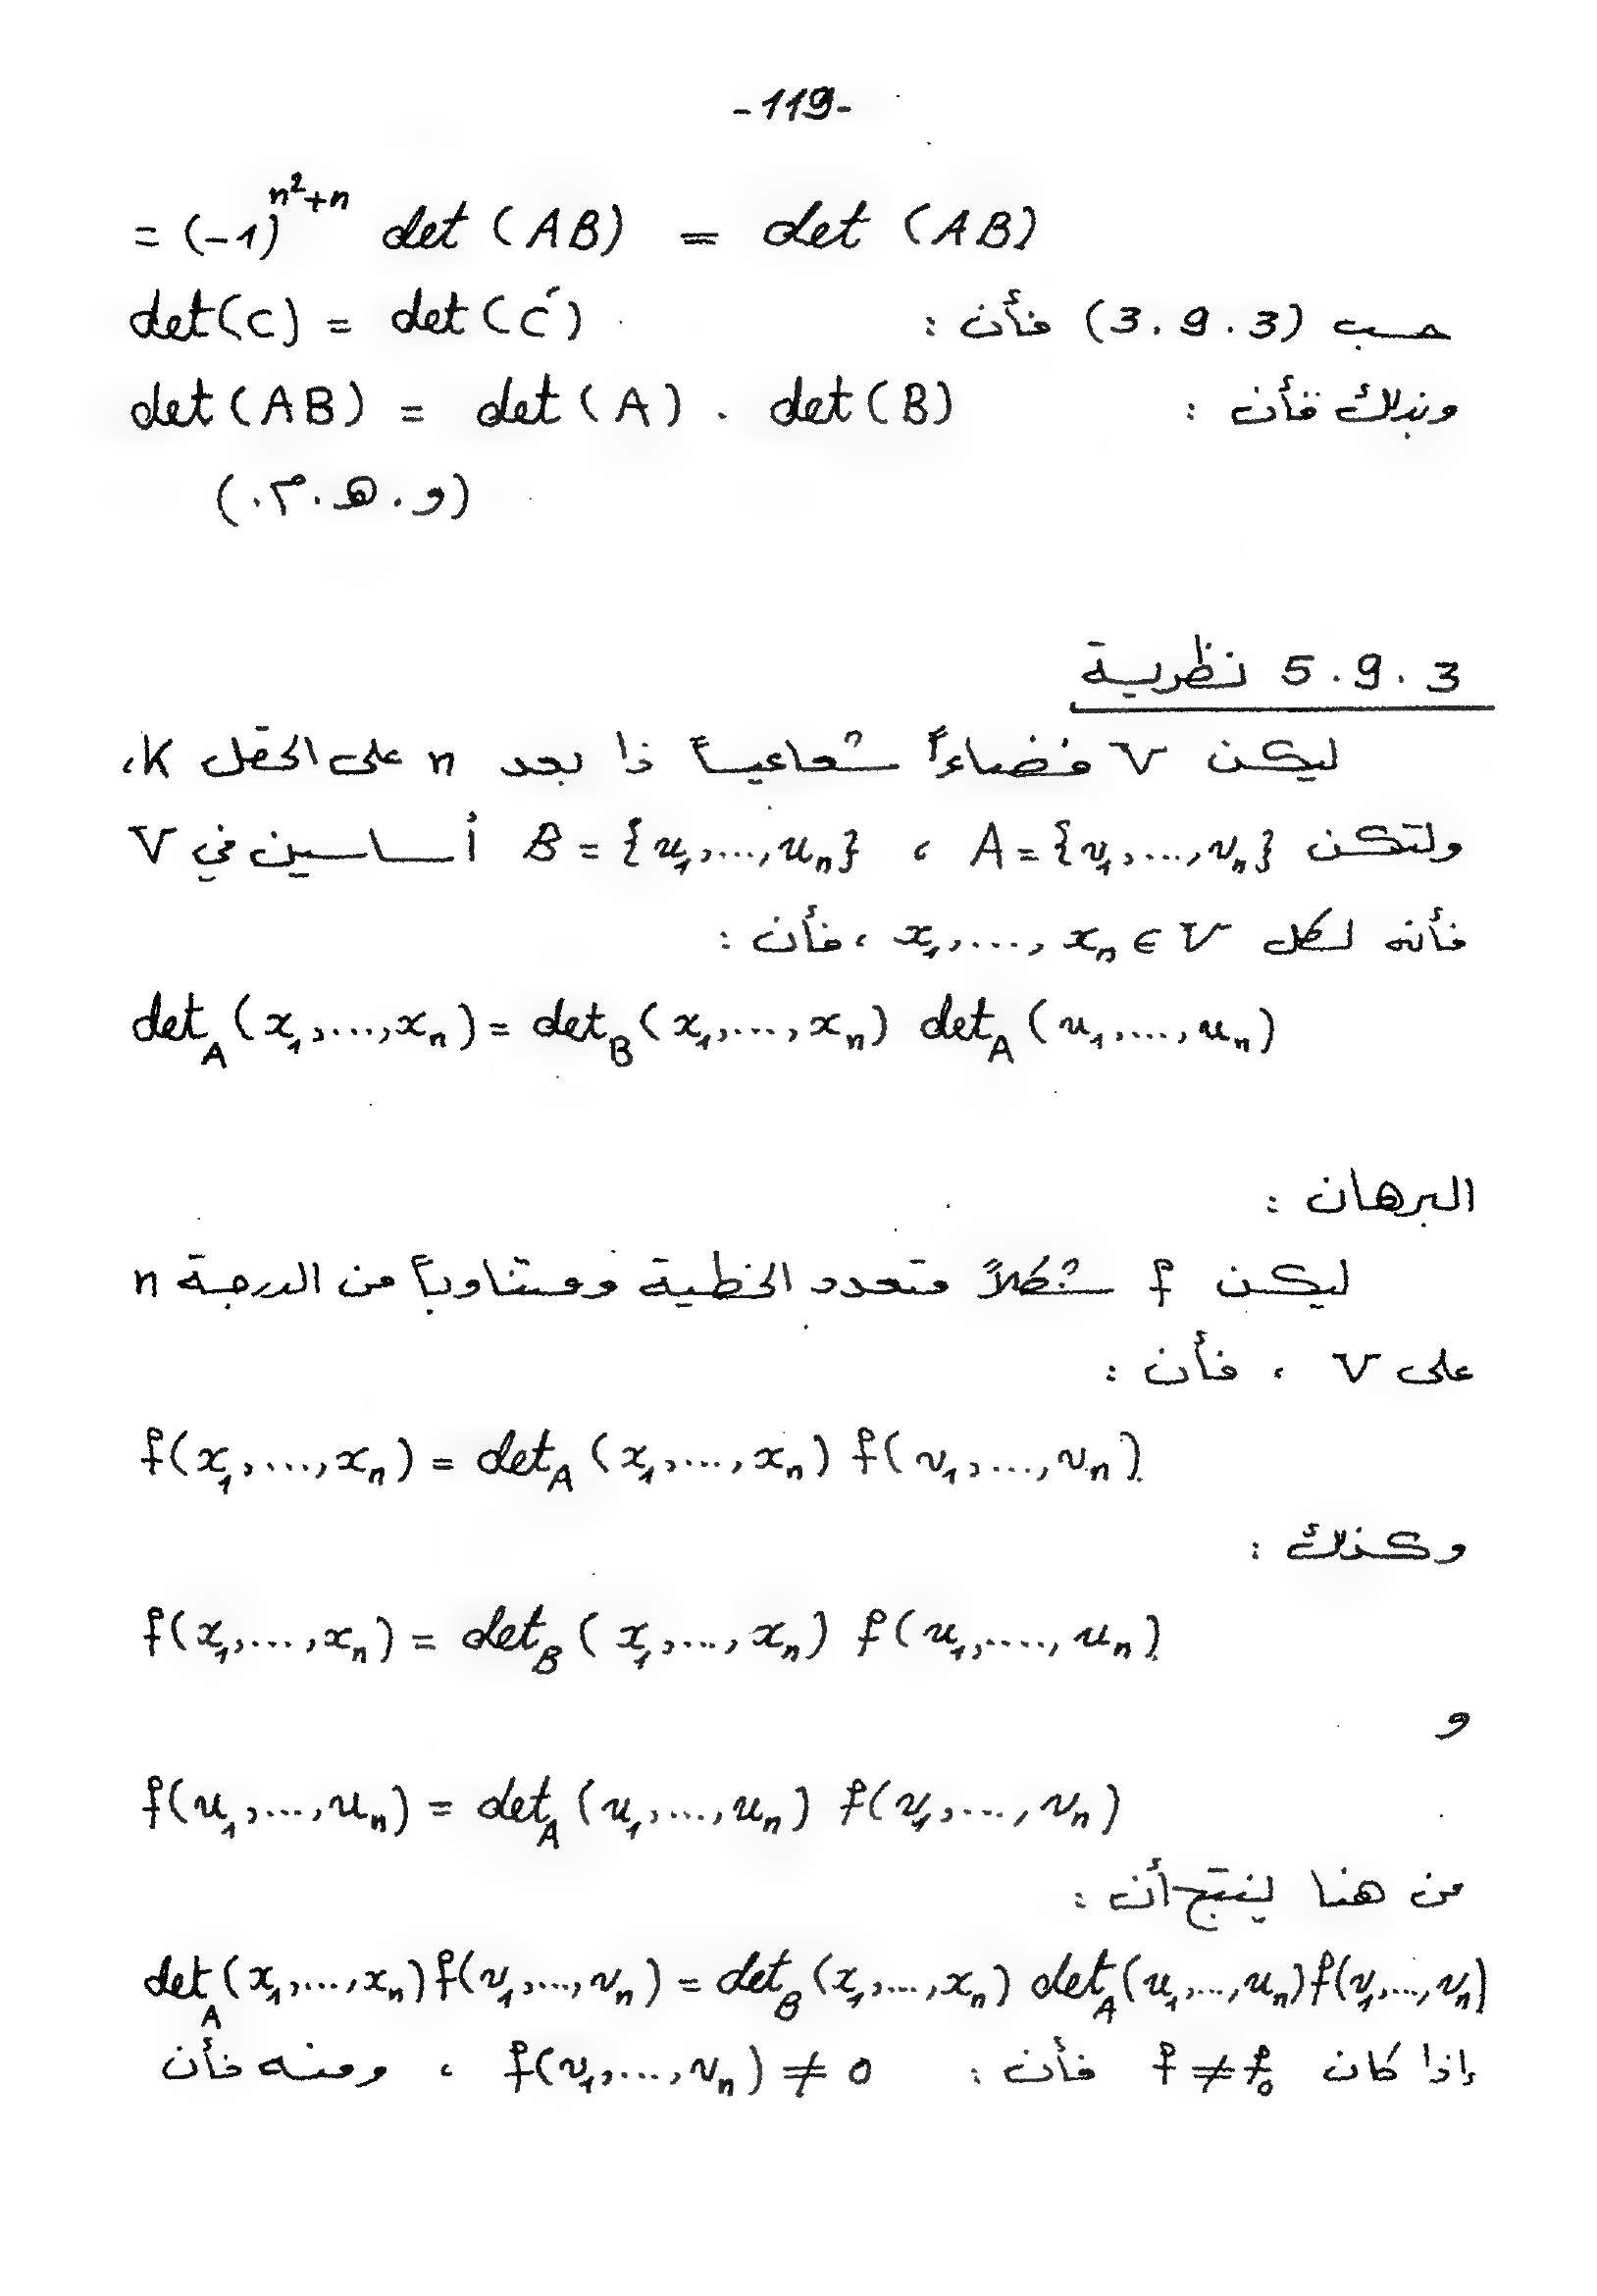 -119-
= (-1)^{n²+n} det (AB) = det (AB)
حسب (3.9.3) فأن : det(C) = det(C′)
وبذلك فأن : det(AB) = det(A) . det(B)
(و.هـ.م.)
5.9.3 نظرية
ليكن V فضاءاً شعاعياً ذا بعد n على الحقل K،
ولتكن A={v₁,...,vₙ} ، B={u₁,...,uₙ} أساسين في V
فأنه لكل x₁,...,xₙ∈V ، فأن :
det_A(x₁,...,xₙ) = det_B(x₁,...,xₙ) det_A(u₁,...,uₙ)
البرهان :
ليكن f شكلاً متعدد الخطية ومتناوباً من الدرجة n
على V ، فأن :
f(x₁,...,xₙ) = det_A(x₁,...,xₙ) f(v₁,...,vₙ)
وكذلك :
f(x₁,...,xₙ) = det_B(x₁,...,xₙ) f(u₁,....,uₙ)
و
f(u₁,...,uₙ) = det_A(u₁,...,uₙ) f(v₁,...,vₙ)
من هنا ينتج أن :
det_A(x₁,...,xₙ)f(v₁,...,vₙ) = det_B(x₁,...,xₙ) det_A(u₁,...,uₙ)f(v₁,...,vₙ)
إذا كان f≠f₀ فأن : f(v₁,...,vₙ) ≠ 0 ، ومنه فأن